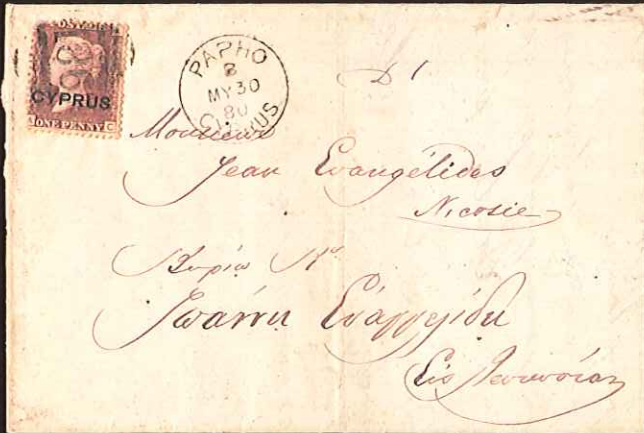 POSTAGE
CYPRUS
ONE PENNY C
PAPHO
B
MY 30
80
CYPRUS
Monsieur
Jean Evangélides
Nicosie
Κυρίω
Ἰωάννη Εὐαγγελίδη
Εἰς Λευκωσίαν